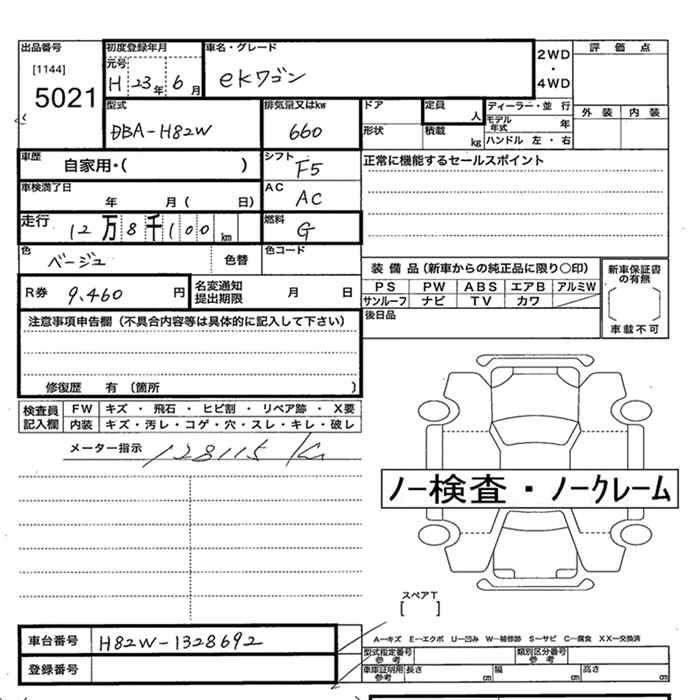 出品番号 [1144] 5021
初度登録年月 元号 H 23年 6月
車名・グレード eKワゴン
2WD・4WD
評価点
外装 内装
型式 DBA-H82W
排気量又はkw 660
ドア 形状
定員 人
積載 kg
ディーラー・並行
モデル年式 年
ハンドル 左・右
車歴 自家用・( )
シフト F5
正常に機能するセールスポイント
車検満了日 年 月( 日)
AC AC
走行 12万8千100km
燃料 G
色 ベージュ 色替
色コード
装備品(新車からの純正品に限り○印)
PS PW ABS エアB アルミW
サンルーフ ナビ TV カワ
新車保証書の有無 〔 〕 車載不可
R券 9,460円
名変通知提出期限 月 日
後日品
注意事項申告欄(不具合内容等は具体的に記入して下さい)
修復歴 有〔箇所 〕
検査員記入欄
FW キズ・飛石・ヒビ割・リペア跡・X要
内装 キズ・汚レ・コゲ・穴・スレ・キレ・破レ
メーター指示 128115 Km
ノー検査・ノークレーム
スペアT
[ ]
車台番号 H82W-1328692
登録番号
A―キズ E―エクボ U―凹み W―補修跡 S―サビ C―腐食 XX―交換済
型式指定番号 参考
類別区分番号 参考
車庫証明用 参考 長さ cm 幅 cm 高さ cm